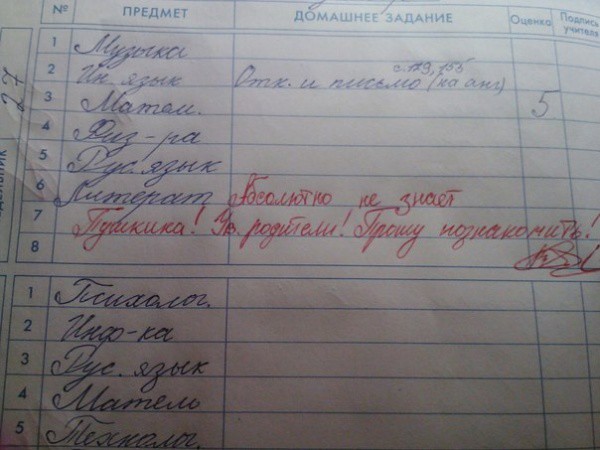 № ПРЕДМЕТ ДОМАШНЕЕ ЗАДАНИЕ Оценка Подпись учителя
1 Музыка
с. 129, 155
2 Ин. язык Отк. и письмо (на анг)
3 Матем. 5
4 Физ-ра
5 Рус. язык
6 Литерат Абсолютно не знает
7 Пушкина! Ув. родители! Прошу познакомить!
8
1 Психолог.
2 Инф-ка
3 Рус. язык
4 Матем
5 Технолог.
27